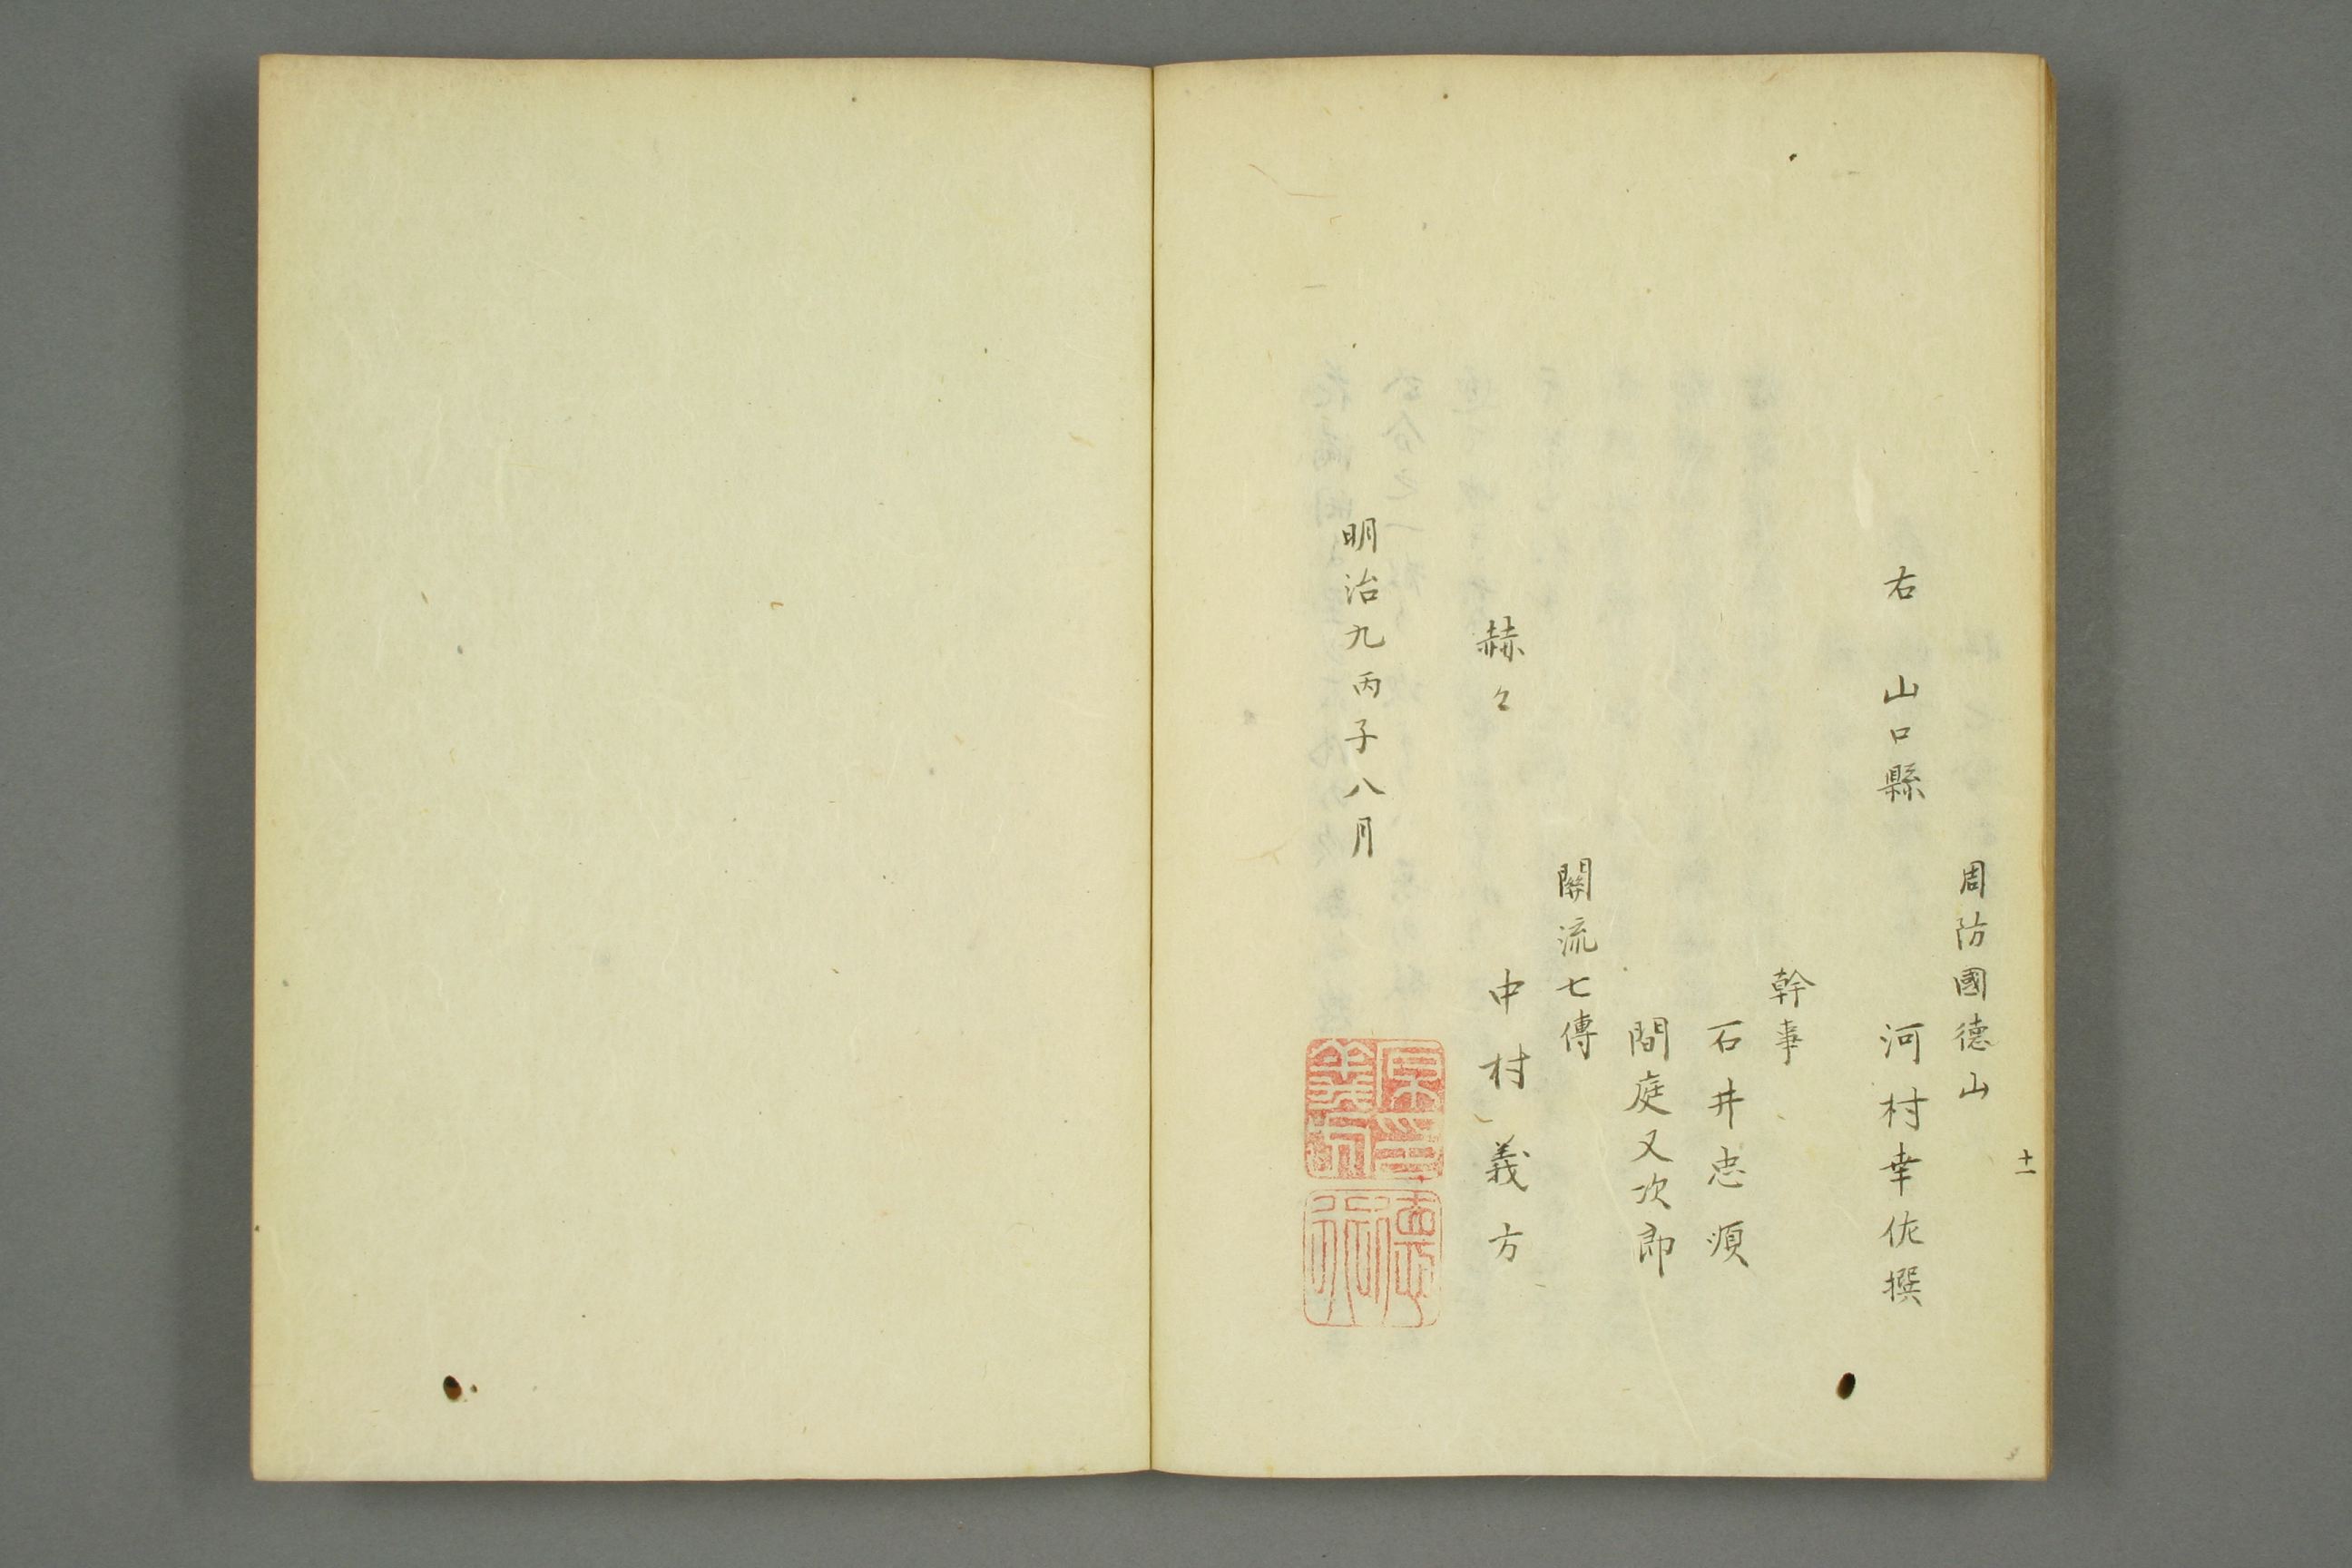 十一
周防國德山
右 山口縣 河村幸佐撰
幹事
石井忠順
間庭又次郎
關流七傳
赫々 中村義方
明治九丙子八月